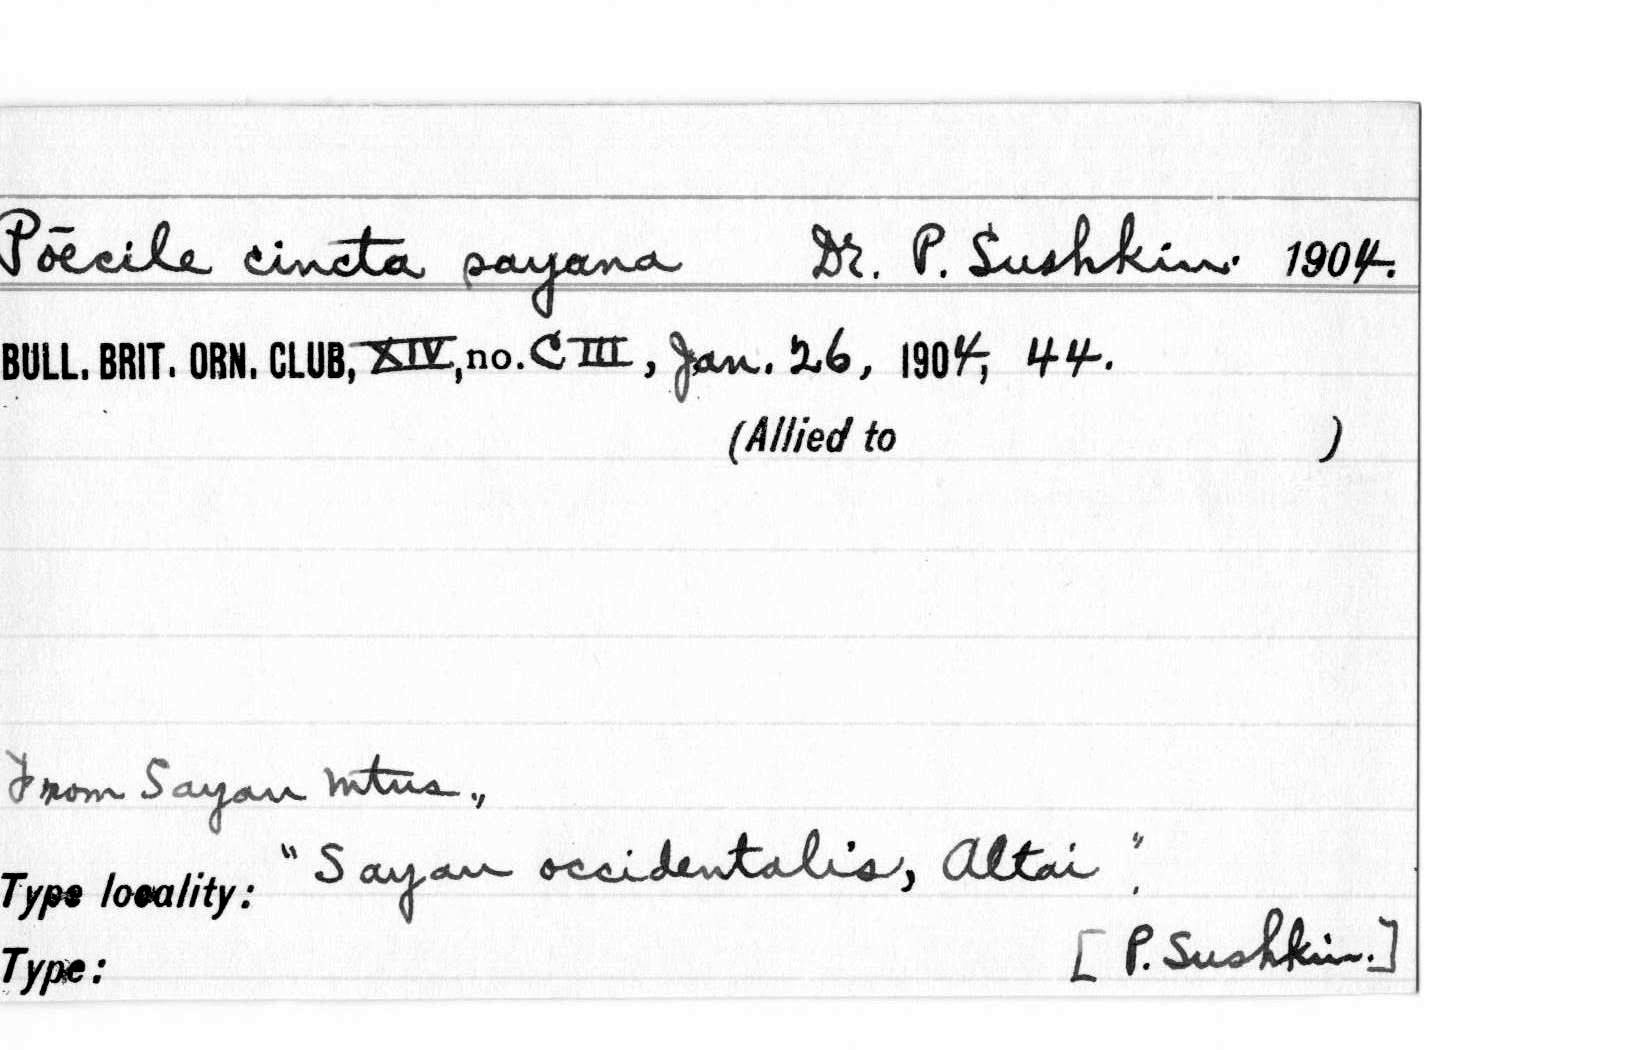 Pōecile cincta sayana Dr. P. Sushkin. 1904.
BULL. BRIT. ORN. CLUB, XIV, no. CIII, Jan. 26, 1904, 44.
(Allied to )
From Sayan mtns.,
Type locality: "Sayan occidentalis, Altai".
Type: [P. Sushkin.]